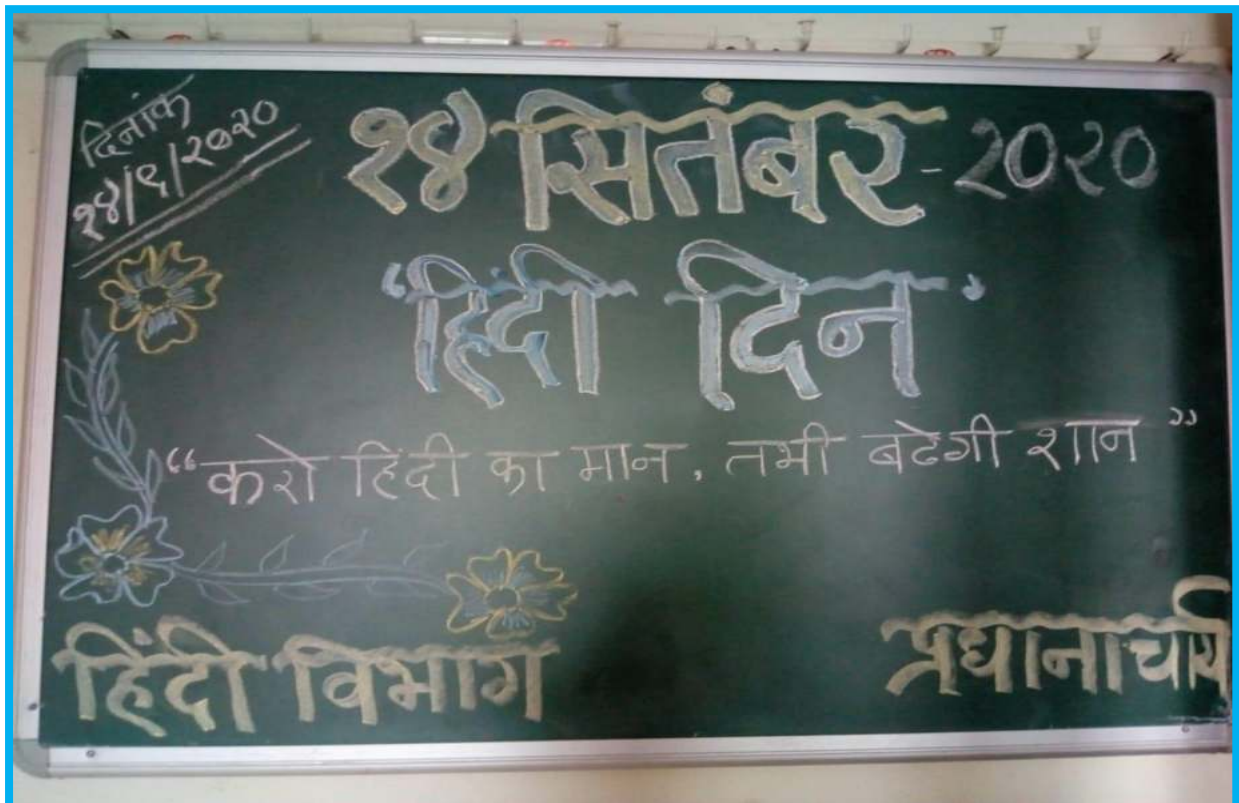 दिनांक
१४/९/२०२०
१४ सितंबर - २०२०
'हिंदी दिन'
“करो हिंदी का मान, तभी बढेगी शान”
हिंदी विभाग
प्रधानाचार्य